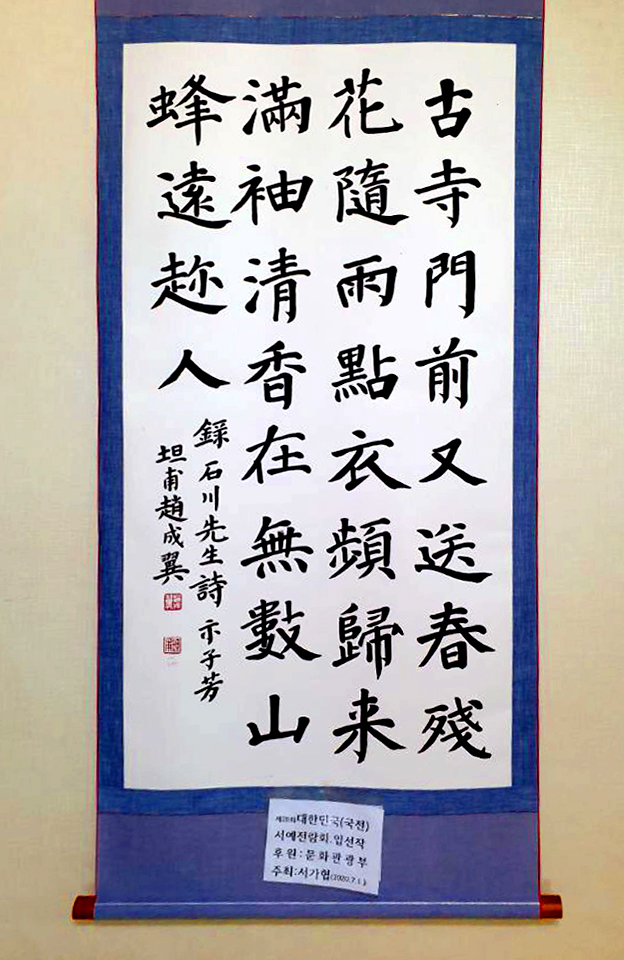 古寺門前又送春殘
花隨雨點衣頻歸来
滿袖清香在無數山
蜂遠趂人
錄石川先生詩 示子芳
坦甫趙成翼
대한민국(국전)
서예전람회.입선작
후원:문화관광부
주최:서가협(2020.7.1.)